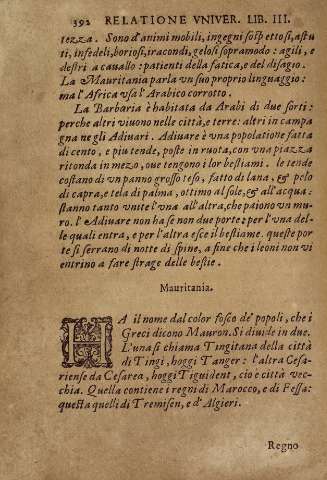 392 RELATIONE VNIVER. LIB. III.
tezza. Sono d'animi mobili, ingegni sospettosi, astu
ti, infedeli, boriosi, iracondi, gelosi sopramodo: agili, e
destri a cauallo: patienti della fatica, e del disagio.
La Mauritania parla vn suo proprio linguaggio:
ma l'Africa vsa l'Arabico corrotto.
La Barbaria è habitata da Arabi di due sorti:
perche altri viuono nelle città, e terre: altri in campa
gna ne gli Adiuari. Adiuare è vna popolatione fatta
di cento, e piu tende, poste in ruota, con vna piazza
ritonda in mezo, oue tengono i lor bestiami. le tende
costano di vn panno grosso teso, fatto di lana, & pelo
di capra, e tela di palma, ottimo al sole, & all'acqua:
stanno tanto vnite l'vna all'altra, che paiono vn mu
ro. l'Adiuare non ha se non due porte: per l'vna del-
le quali entra, e per l'altra esce il bestiame. queste por
te si serrano di notte di spine, a fine che i leoni non vi
entrino a fare strage delle bestie.
Mauritania.
HA il nome dal color fosco de' popoli, che i
Greci dicono Mauron. Si diuide in due.
L'una si chiama Tingitana della città
di Tingi, hoggi Tanger: l'altra Cesa-
riense da Cesarea, hoggi Tiguident, cio è città vec-
chia. Quella contiene i regni di Marocco, e di Fessa:
questa quelli di Tremisen, e d'Algieri.
Regno